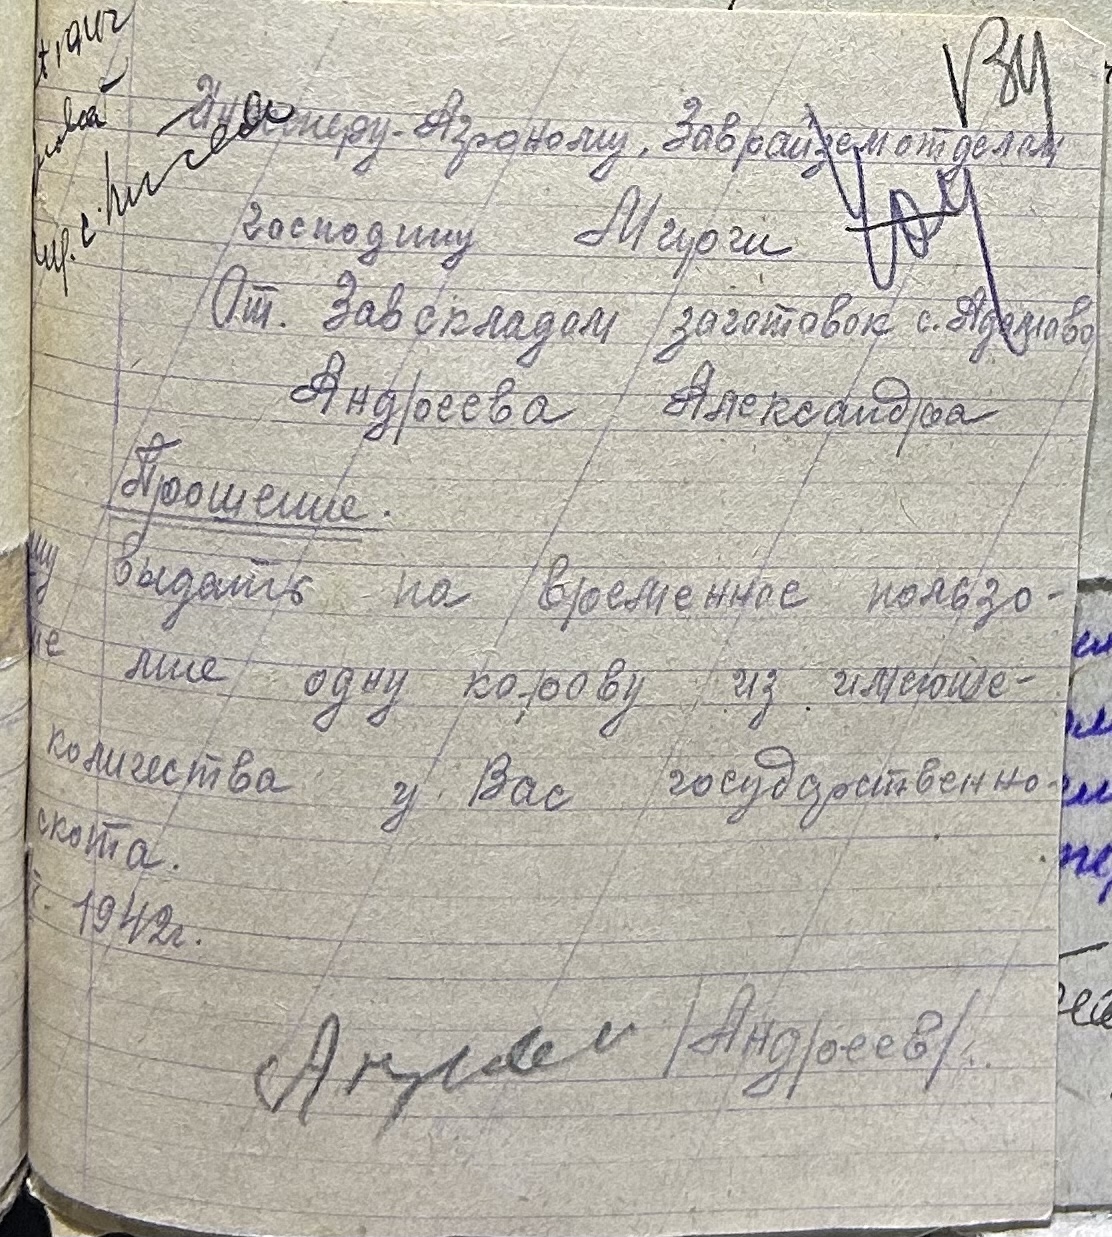 Инженеру-Агроному, Заврайземотделом
господину Мгуоги
От. Завскладом заготовок с. Адамово
Андреева Александра
Прошение.
выдать на временное пользо-
мне одну корову из имеюше-
количества у Вас государственно-
скота.
1942г.
/Андреев/.